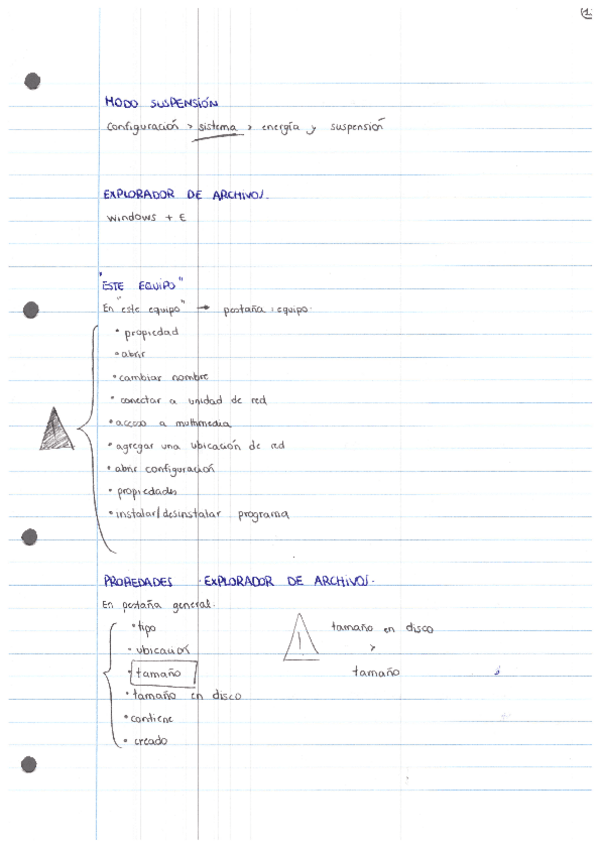 MODO SUSPENSIÓN
Configuración > sistema > energía y suspensión
EXPLORADOR DE ARCHIVOS.
Windows + E
"ESTE EQUIPO"
En "este equipo" → pestaña: equipo.
• propiedad
• abrir
• cambiar nombre
• conectar a unidad de red
• acceso a multimedia
• agregar una ubicación de red
• abrir configuración
• propiedades
• instalar/desinstalar programa
PROPIEDADES · EXPLORADOR DE ARCHIVOS.
En pestaña general.
• tipo
• ubicación
• tamaño
• tamaño en disco
• contiene
• creado
! tamaño en disco
>
tamaño